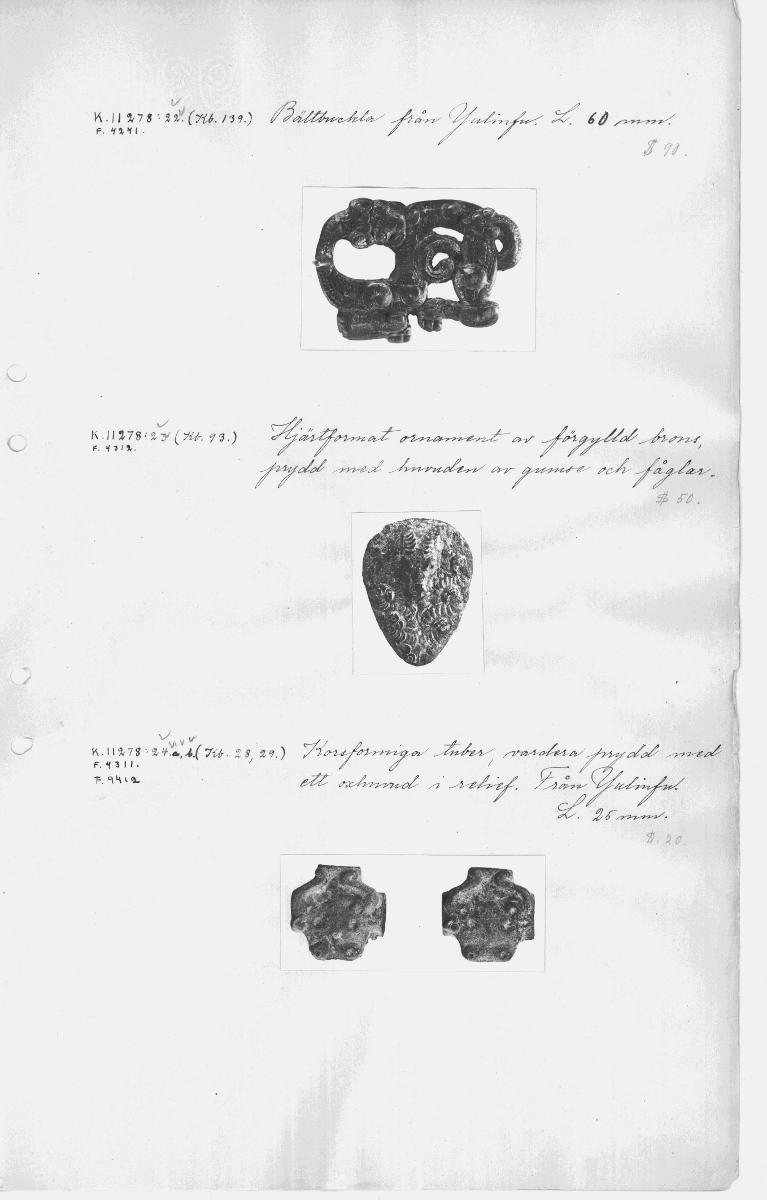 K.11278:22. (Kb. 139.) Bältbuckla från Yulinfu. L. 60 mm.
F. 4241.
$ 90.
K.11278:23 (Kb. 93.) Hjärtformat ornament av förgylld brons,
F. 4312.
prydd med huvuden av gumse och fåglar.
$ 50.
K.11278:24.a, b. (Kb. 28, 29.) Korsformiga tuber, vardera prydd med
F. 4311.
ett oxhuvud i relief. Från Yulinfu.
F. 9412
L. 25 mm.
$. 20.